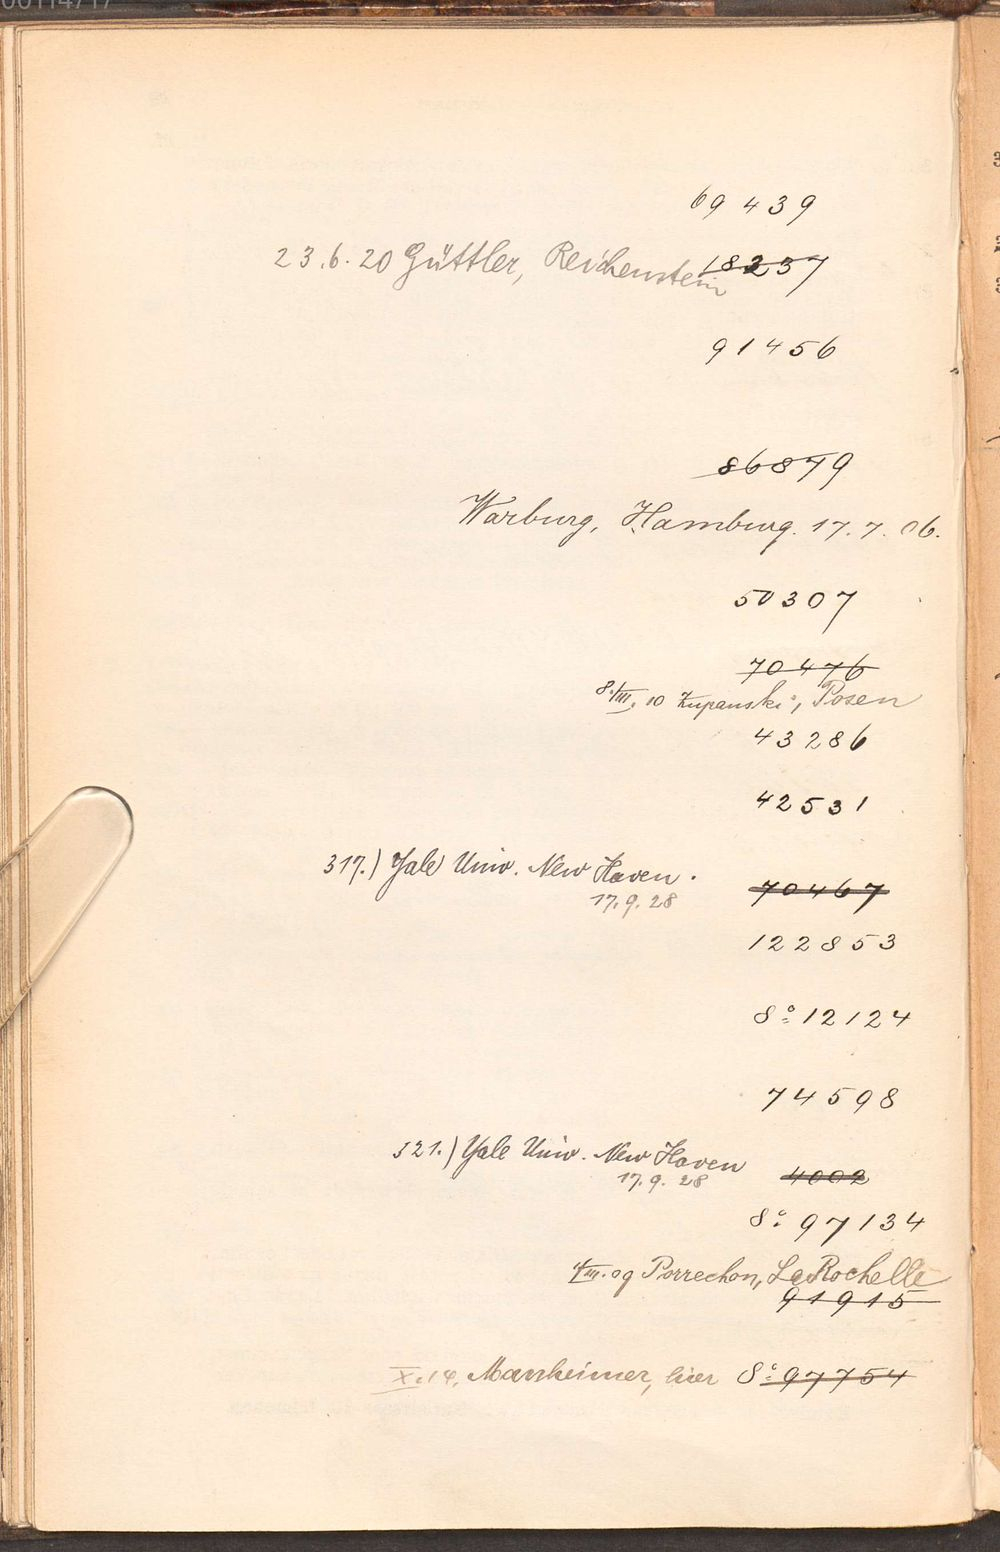 69 439
23.6.20 Güttler, Reichenstein 18237
91456
86879
Warburg, Hamburg. 17.7.06.
50307
70476
8./III. 10 Zupanski, Posen
43286
42531
317.) Yale Univ. New Haven.
17.9.28 70467
122853
8° 12124
74598
321.) Yale Univ. New Haven
17.9.28 4002
8° 97134
09 Porrechon, La Rochelle
91915
X.14. Mannheimer, hier 8° 97754